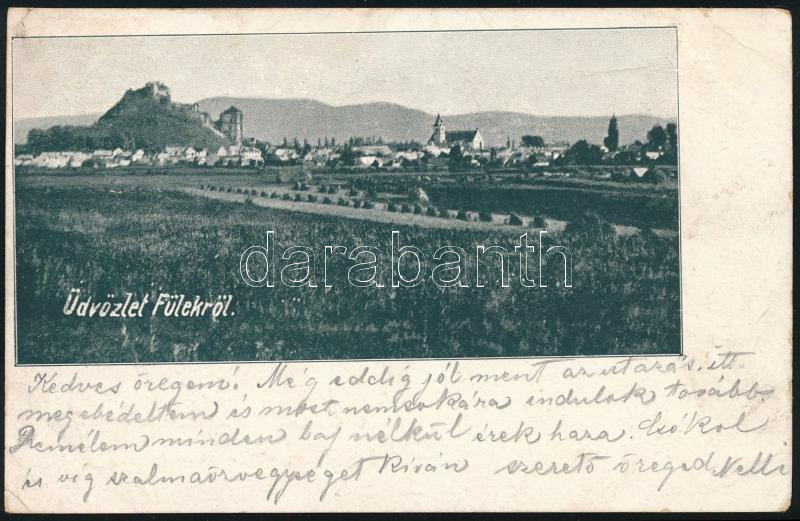 darabanth
Üdvözlet Fülekről.
Kedves öregem! Még eddig jól ment az utazás, itt
megebédeltem és most nemsokára indulok tovább.
Remélem minden baj nélkül érek haza. Csókol
és víg szalmaözvegységet kíván szerető öreged Nelli